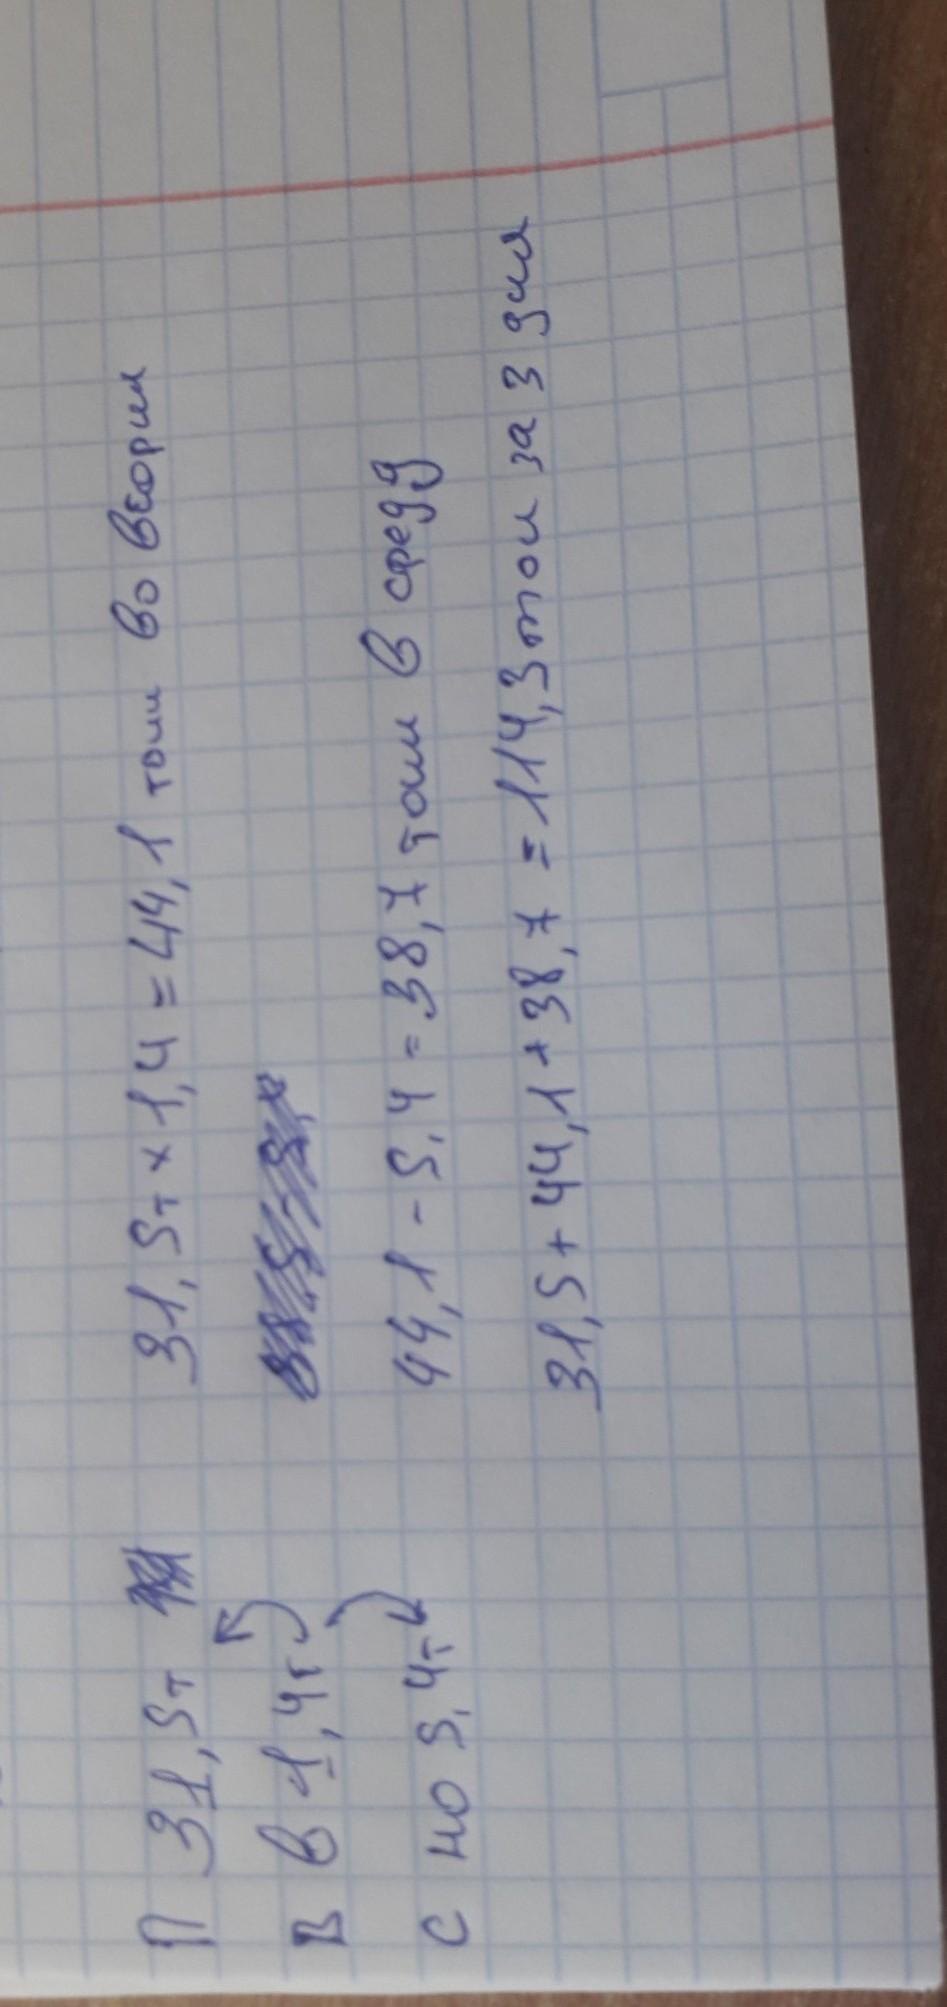 П 31,5т
В в 1,4т
С но 5,4т
31,5т × 1,4 = 44,1 тонн во вторн
44,1 - 5,4 = 38,7 тонн в среду
31,5 + 44,1 + 38,7 = 114,3 тонн за 3 дня